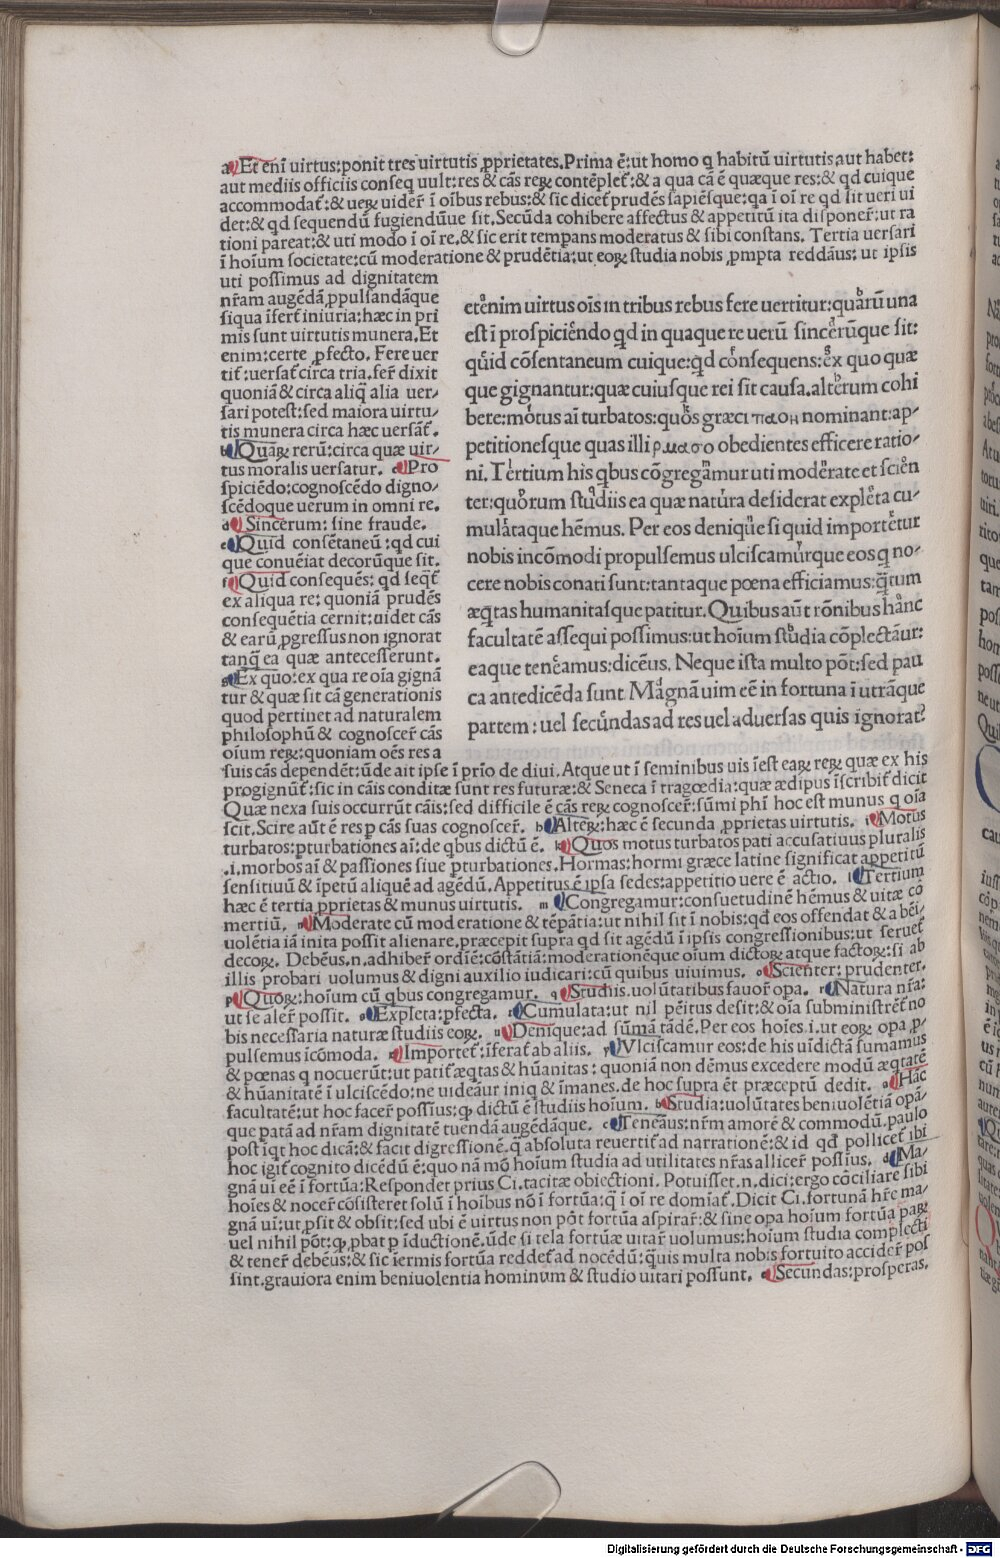 a Et enī uirtus:ponit tres uirtutis ꝓprietates.Prima ē:ut homo q habitū uirtutis aut habet:
aut mediis officiis conseq uult:res & cās reꝝ contēplet̃:& a qua cā ē quæque res:& qd cuique
accommodat̃:& ueꝝ uider̃ ī oībus rebus:& sic dicet̃ prudēs sapiēsque:qa ī oī re qd sit ueri ui
det:& qd sequendū fugiendūue sit.Secūda cohibere affectus & appetitū ita disponer̃:ut ra
tioni pareat:& uti modo ī oī re.& sic erit temperans moderatus & sibi constans. Tertia uersari
ī hoīum societate:cū moderatione & prudētia:ut eoꝝ studia nobis ꝓmpta reddāus: ut ipsis
uti possimus ad dignitatem
nr̄am augēdā ꝓpulsandāque
siqua īfert̃ iniuria:hæc in pri
mis sunt uirtutis munera.Et
enim:certe ꝓfecto. Fere uer
tit̃:uersat̃ circa tria.fer̃ dixit
quoniā & circa aliq̄ alia uer-
sari potest:sed maiora uirtu-
tis munera circa hæc uersāt̃.
b Quaꝝ rerū:circa quæ uir-
tus moralis uersatur. c Pro
spiciēdo:cognoscēdo digno-
scēdoque uerum in omni re.
d Sincerum: sine fraude.
e Quid consētaneū:qd cui
que conueīat decorūque sit.
f Quid consequēs: qd seqt̃
ex aliqua re: quoniā prudēs
consequētia cernit:uidet cās
& earū ꝓgressus non ignorat
tanq̄ ea quæ antecesserunt.
g Ex quo:ex qua re oīa gignā
tur & quæ sit cā generationis
quod pertinet ad naturalem
philosophū & cognoscer̃ cās
oīum reꝝ:quoniam oēs res a
suis cās dependēt:ūde ait ipse ī prio de diui.Atque ut ī seminibus uis īest eaꝝ reꝝ quæ ex his
progignūt̃:sic in cāis conditæ sunt res futuræ:& Seneca ī tragœdia:quæ ædipus īscribit̃ dicit
Quæ nexa suis occurrūt cāis:sed difficile ē cās reꝝ cognoscer̃:sūmi phī hoc est munus q oīa
scit.Scire aūt ē res p cās suas cognoscer̃. h Alteꝝ:hæc ē secunda ꝓprietas uirtutis. i Motus
turbatos:pturbationes aī:de qbus dictū ē. k Quos motus turbatos pati accusatiuus pluralis
.i.morbos aī & passiones siue pturbationes.Hormas:hormi græce latine significat appetitū
sensitiuū & īpetū aliquē ad agēdū.Appetitus ē ipsa sedes:appetitio uere ē actio. l Tertium
hæc ē tertia pprietas & munus uirtutis. m Congregamur:consuetudinē hēmus & uitæ cō
mertiū. n Moderate cū moderatione & tēpātia:ut nihil sit ī nobis:qd eos offendat & a bēi-
uolētia iā inita possit alienare.præcepit supra qd sit agēdū ī ipsis congressionibus:ut seruet̃
decoꝝ. Debēus.n.adhiber̃ ordiē:cōstātiā:moderationēque oīum dictoꝝ atque factoꝝ:si ab
illis probari uolumus & digni auxilio iudicari:cū quibus uiuimus. o Scienter: prudenter.
p Quoꝝ:hoīum cū qbus congregamur. q Studiis.uolūtatibus fauor̃ opa. r Natura nr̄a:
ut se aler̃ possit. s Expleta:pfecta. t Cumulata:ut nil pēitus desit:& oīa subministrēt̃ no
bis necessaria naturæ studiis eoꝝ. u Denique:ad sūmā tādē.Per eos hoīes.i.ut eoꝝ opa ꝓ-
pulsemus icōmoda. x Importet̃:īferat̃ ab aliis. y Vlciscamur eos:de his uīdictā sumamus
& pœnas q nocuerūt:ut patit̃ æqtas & hūanitas: quoniā non dēmus excedere modū æqtatē
& hūanitatē ī ulciscēdo:ne uideāur iniq & īmanes.de hoc supra ēt præceptū dedit. a Hāc
facultatē:ut hoc facer̃ possīus:qp dictū ē studiis hoīum. b Studia:uolūtates beniuolētiā opā-
que patā ad nr̄am dignitatē tuendā augēdāque. c Teneāus:nr̄m amorē & commodū.paulo
post īqt hoc dicā:& facit digressionē.q̄ absoluta reuertit̃ ad narrationē:& id qd pollicet̃ ibi
hoc igit̃ cognito dicēdū ē:quo nā mō hoīum studia ad utilitates nr̄as allicer̃ possīus. d Ma-
gnā uī eē ī fortūa:Respondet prius Ci.tacitæ obiectioni. Potuisset.n.dici:ergo cōciliare sibi
hoīes & nocer̃ cōsisteret solū ī hoībus nō ī fortūa:q̄ ī oī re domīat̃.Dicit Ci.fortunā hr̄e ma-
gnā uī:ut ꝓsit & obsit:sed ubi ē uirtus non pōt fortūa aspirar̃:& sine opa hoīum fortūa paꝝ
uel nihil pōt:qp ꝓbat p īductionē.ūde si tela fortūæ uitar̃ uolumus:hoīum studia complecti
& tener̃ debēus:& sic īermis fortūa reddet̃ ad nocēdū:quis multa nobis fortuito accider̃ pos
sint.grauiora enim beniuolentia hominum & studio uitari possunt. e Secundas:prosperas.
etenim uirtus oīs in tribus rebus fere uertitur:quarū una
est ī prospiciēndo qd in quaque re uerū sincerūque sit:
quid cōsentaneum cuique:qd consequens:ex quo quæ
que gignantur:quæ cuiusque rei sit causa.alterum cohi
bere:motus aī turbatos:quos græci παθη nominant:ap-
petitionesque quas illi ρμασο obedientes efficere ratio-
ni. Tertium his qbus cōgregamur uti moderate et sciēn
ter:quorum studiis ea quæ natura desiderat expleta cu-
mulataque hēmus. Per eos denique si quid importetur
nobis incōmodi propulsemus ulciscamurque eos q no-
cere nobis conati sunt:tantaque pœna efficiamus:q̄tum
æqtas humanitasque patitur.Quibus aūt rōnibus hanc
facultatē assequi possimus:ut hoīum studia cōplectāur:
eaque teneamus:dicēus. Neque ista multo pōt:sed pau
ca antedicēda sunt Magnā uim eē in fortuna ī utrāque
partem: uel secundas ad res uel aduersas quis ignorat?
Digitalisierung gefördert durch die Deutsche Forschungsgemeinschaft - DFG